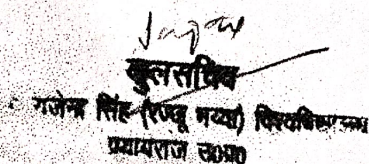 कुलसचिव
गजेन्द्र सिंह (रज्जू भय्या) विश्वविद्यालय
प्रयागराज उ०प्र०